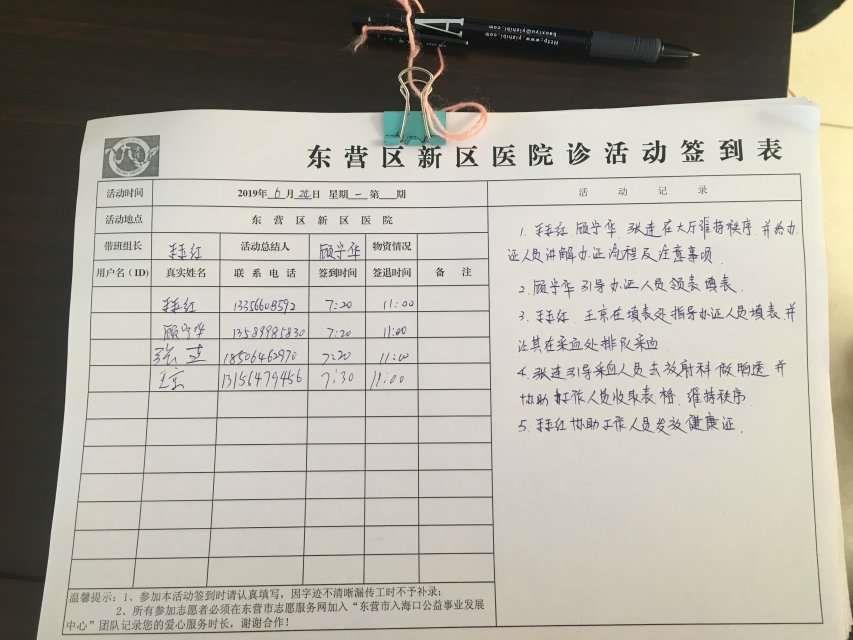 Http:www.yishibi.com
baoxiyu@yishibi.com
东营区新区医院诊活动签到表
活动时间 2019年6月 日 星期一 第 期
活动地点 东营区新区医院
带班组长 活动总结人 顾宁华 物资情况
用户名(ID) 真实姓名 联系电话 签到时间 签退时间 备注
13356608592 7:20 11:00
顾宁华 13589985830 7:20 11:00
张连 18506462970 7:20 11:00
王京 13156479456 7:30 11:00
温馨提示:1、参加本活动签到时请认真填写,因字迹不清晰漏传工时不予补录;
2、所有参加志愿者必须在东营市志愿服务网加入“东营市入海口公益事业发展
中心”团队记录您的爱心服务时长,谢谢合作!
活动记录
1. 红 顾宁华 张连在大厅维持秩序 并为办
证人员讲解办证流程及注意事项.
2. 顾宁华引导办证人员领表填表.
3. 红、王京在填表处指导办证人员填表,并
让其在采血处排队采血
4. 张连引导采血人员去放射科做胸透 并
协助工作人员收取表格、维持秩序.
5. 红协助工作人员发放健康证.